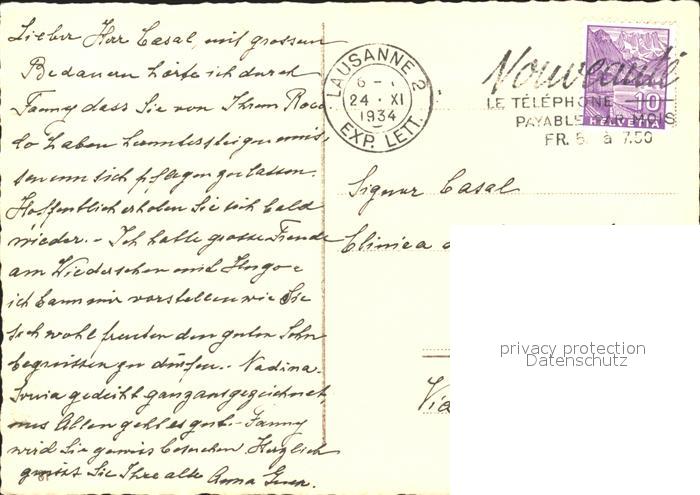 Lieber Herr Casal, mit grossem
Bedauern hörte ich durch
Fanny dass Sie von Ihrem Roco-
lo haben heruntersteigen müs-
sen um sich pflegen zu lassen.
Hoffentlich erholen Sie sich bald
wieder. - Ich hatte grosse Freude
am Wiedersehen mit Hugo -
ich kann mir vorstellen wie Sie
sich wohl freuten den guten Sohn
begrüssen zu dürfen. - Nadina-
gedeiht ganz ausgezeichnet
uns Allen geht es gut. - Fanny
wird Sie gewiss besuchen. Herzlich
grüsst Sie Ihre alte Anna
LAUSANNE 2
6 -
24 · XI
1934
EXP. LETT.
Nouveauté
LE TÉLÉPHONE
PAYABLE PAR MOIS
FR. 6. à 7.50
10
HELVETIA
Signor Casal
Clinica
Via
privacy protection
Datenschutz